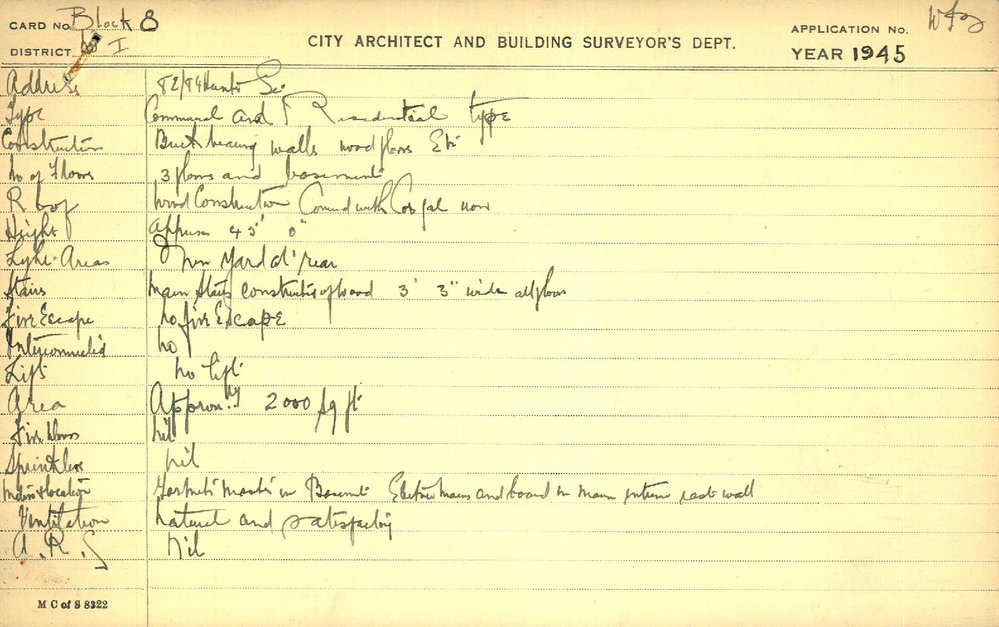 CARD No. Block 8
APPLICATION No.
DISTRICT I
CITY ARCHITECT AND BUILDING SURVEYOR'S DEPT.
YEAR 1945
Address 82/84 Hunter St
Type Commercial and Residential type
Construction Brick bearing walls wood floors Etc
No of Floors 3 floors and basement
Roof Wood Construction Covered with Cor gal iron
Height Approx 43' 0"
Light Areas Own Yard at rear
Stairs Main Stairs constructed of wood 3' 3" wide all floors
Fire Escape No fire Escape
Interconnected No
Lift No lift
Area Approx 2000 sq ft
Fire Doors Nil
Sprinklers Nil
Mains location in Basement Electric mains and board in main entrance east wall
Ventilation Natural and satisfactory
A.R.S Nil
M C of S 8322